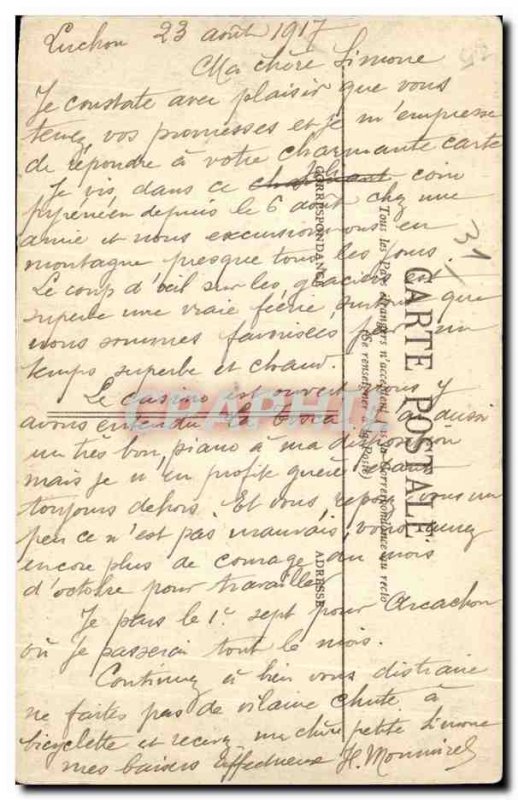 Luchon 23 août 1917
Ma chère Simone
Je constate avec plaisir que vous
tenez vos promesses et je m'empresse
de répondre à votre charmante carte
Je vis dans ce coin
pyrénéen depuis le 6 août chez une
amie et nous excursionnons en
montagne presque tous les jours.
Le coup d'œil sur les glaciers est
superbe une vraie féérie, surtout que
nous sommes favorisées par un
temps superbe et chaud.
Le casino est ouvert nous y
avons entendu la Tosca. J'ai aussi
un très bon piano à ma disposition
mais je n'en profite guère étant
toujours dehors. Et vous reposez vous un
peu ce n'est pas mauvais, vous aurez
encore plus de courage au mois
d'octobre pour travailler
Je pars le 1r sept pour Arcachon
où je passerai tout le mois.
Continuez à bien vous distraire
ne faites pas de vilaine chute à
bicyclette et recevez ma chère petite Simone
mes baisers affectueux H.
CARTE POSTALE
Tous les Pays étrangers n'acceptent pas la Correspondance au recto
(Se renseigner à la Poste)
CORRESPONDANCE
ADRESSE
31
CPAPHIL